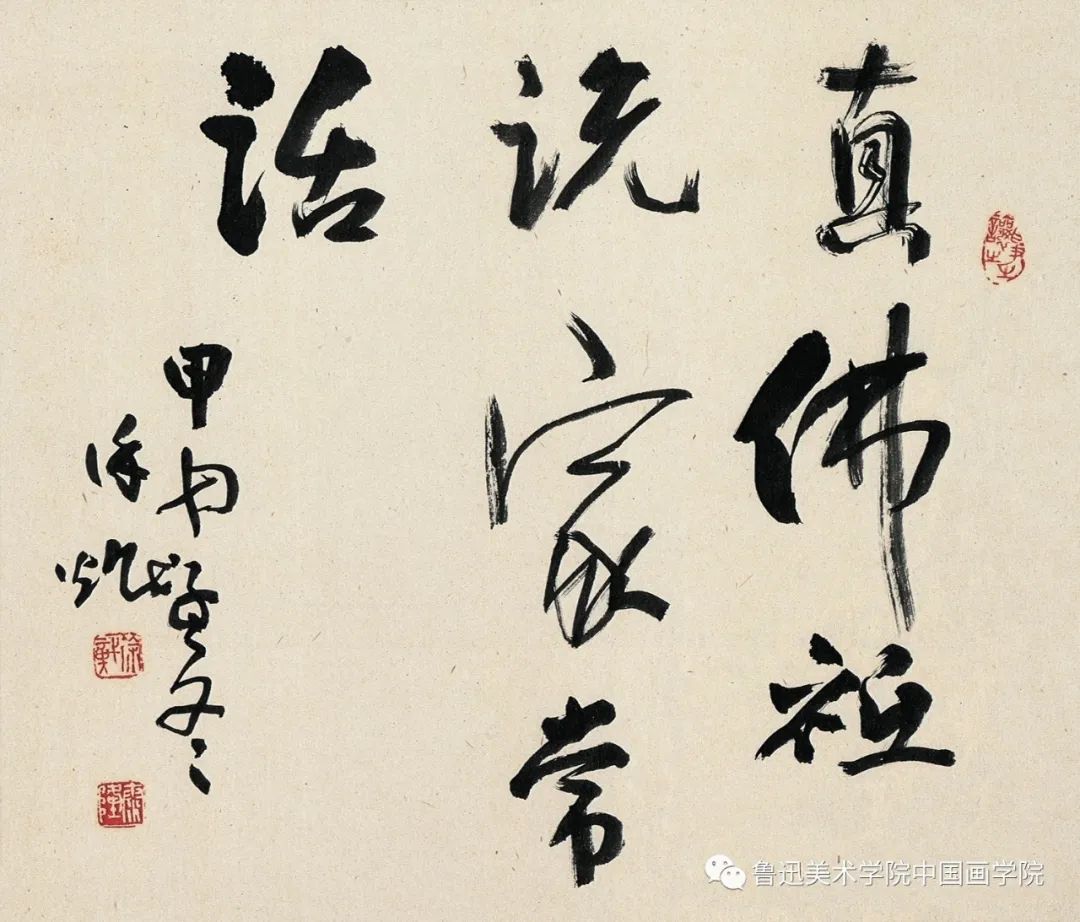 真佛祖
说家常
话
甲申冬
徐
鲁迅美术学院中国画学院